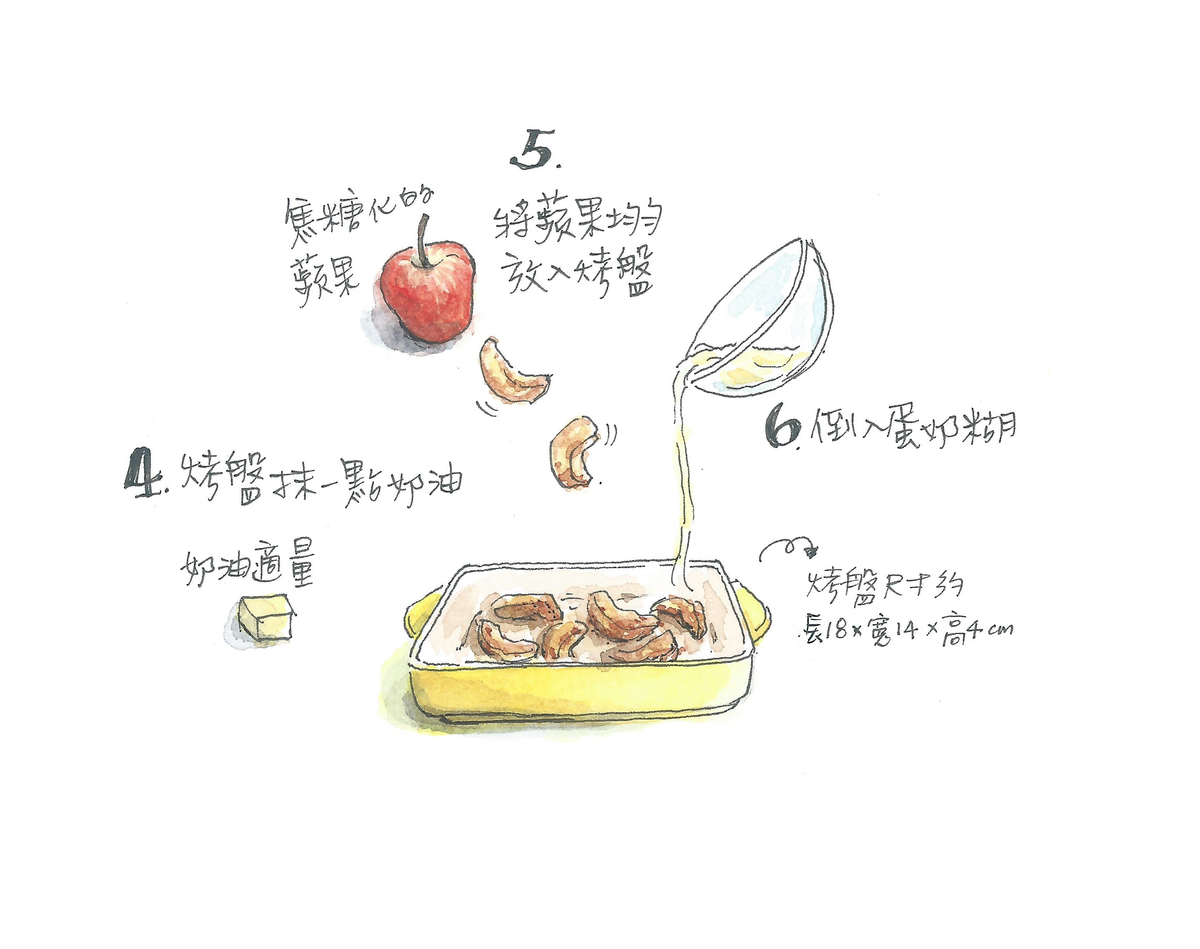 5.
焦糖化的
蘋果
將蘋果均勻
放入烤盤
6.倒入蛋奶糊
4.烤盤抹一點奶油
奶油適量
烤盤尺寸約
長18×寬14×高4cm